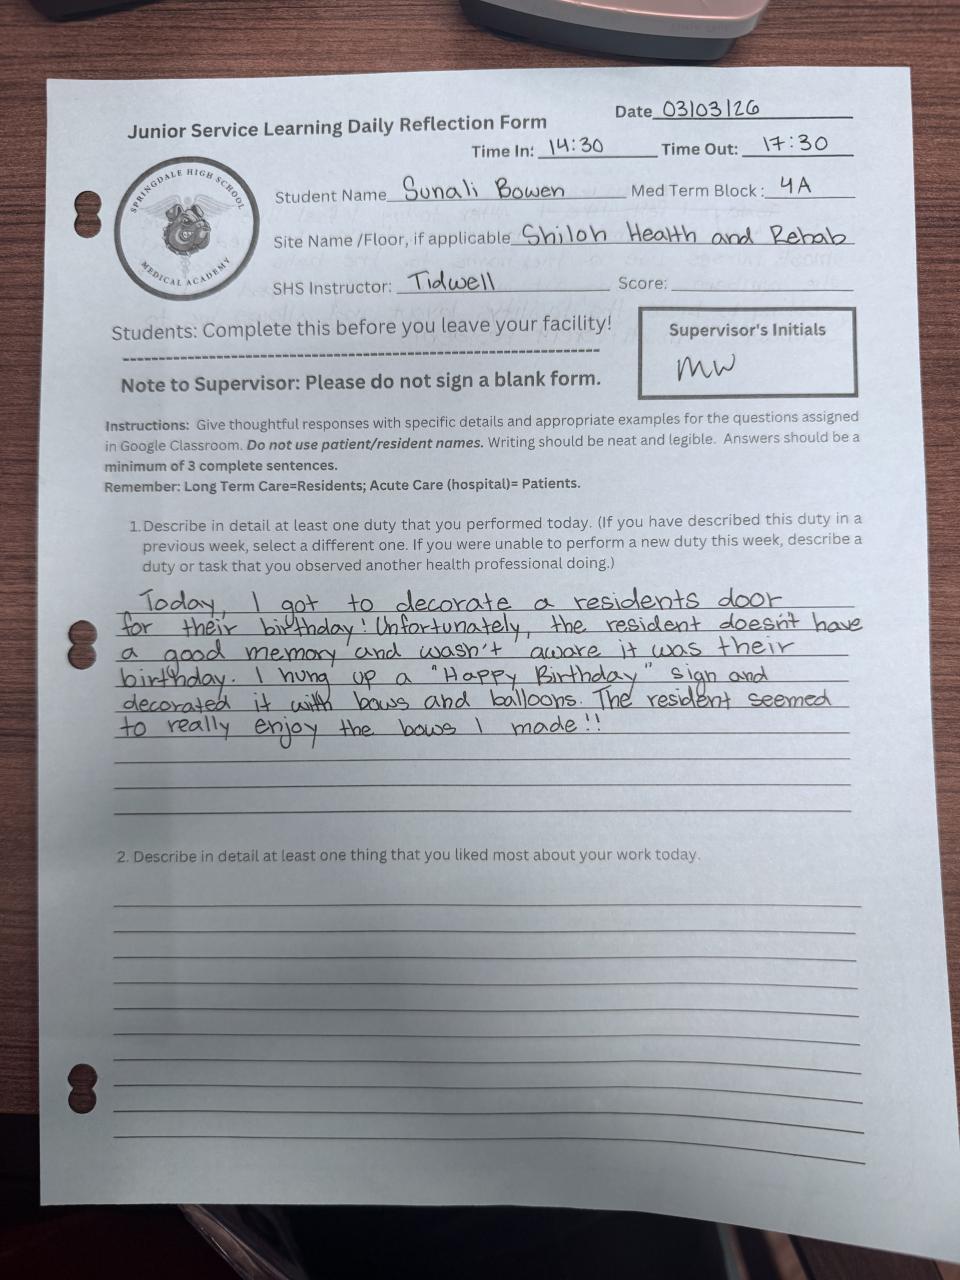 Date 03/03/26
Junior Service Learning Daily Reflection Form
Time In: 14:30 Time Out: 17:30
SPRINGDALE HIGH SCHOOL
MEDICAL ACADEMY
Student Name Sunali Bowen Med Term Block: 4A
Site Name /Floor, if applicable Shiloh Health and Rehab
SHS Instructor: Tidwell Score:
Students: Complete this before you leave your facility!
Supervisor's Initials
MW
Note to Supervisor: Please do not sign a blank form.
Instructions: Give thoughtful responses with specific details and appropriate examples for the questions assigned
in Google Classroom. Do not use patient/resident names. Writing should be neat and legible. Answers should be a
minimum of 3 complete sentences.
Remember: Long Term Care=Residents; Acute Care (hospital)= Patients.
1. Describe in detail at least one duty that you performed today. (If you have described this duty in a
previous week, select a different one. If you were unable to perform a new duty this week, describe a
duty or task that you observed another health professional doing.)
Today, I got to decorate a residents door
for their birthday! Unfortunately, the resident doesn't have
a good memory and wasn't aware it was their
birthday. I hung up a "Happy Birthday" sign and
decorated it with bows and balloons. The resident seemed
to really enjoy the bows I made!!
2. Describe in detail at least one thing that you liked most about your work today.